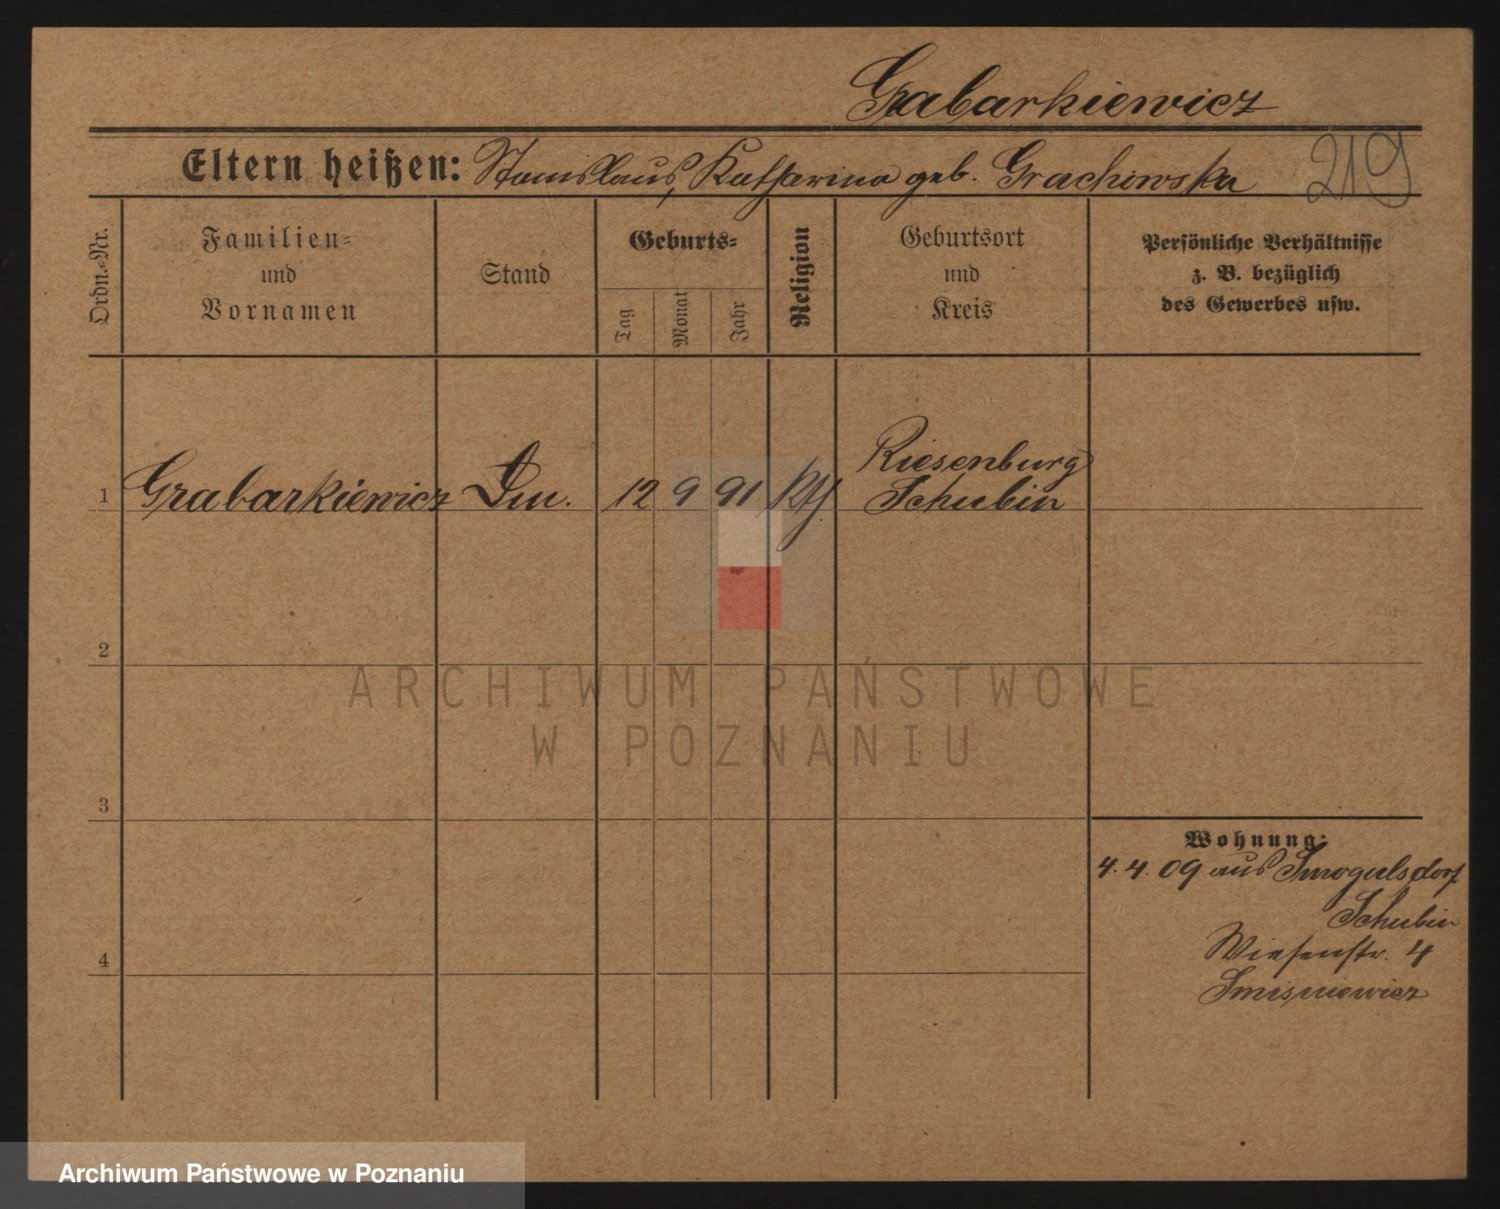 Grabarkiewicz
Eltern heißen: Stanislaus, Katharina geb. Grachowska 219
Ordn.-Nr.
Familien-
und
Vornamen
Stand
Geburts-
Tag
Monat
Jahr
Religion
Geburtsort
und
Kreis
Persönliche Verhältnisse
z. B. bezüglich
des Gewerbes usw.
Riesenburg
1 Grabarkiewicz 12 9 91 kth. Schubin
2
ARCHIWUM PAŃSTWOWE
W POZNANIU
3
Wohnung:
4.4.09 aus Smogulsdorf
Schubin
Wiesenstr. 4
4
Smisniewicz
Archiwum Państwowe w Poznaniu